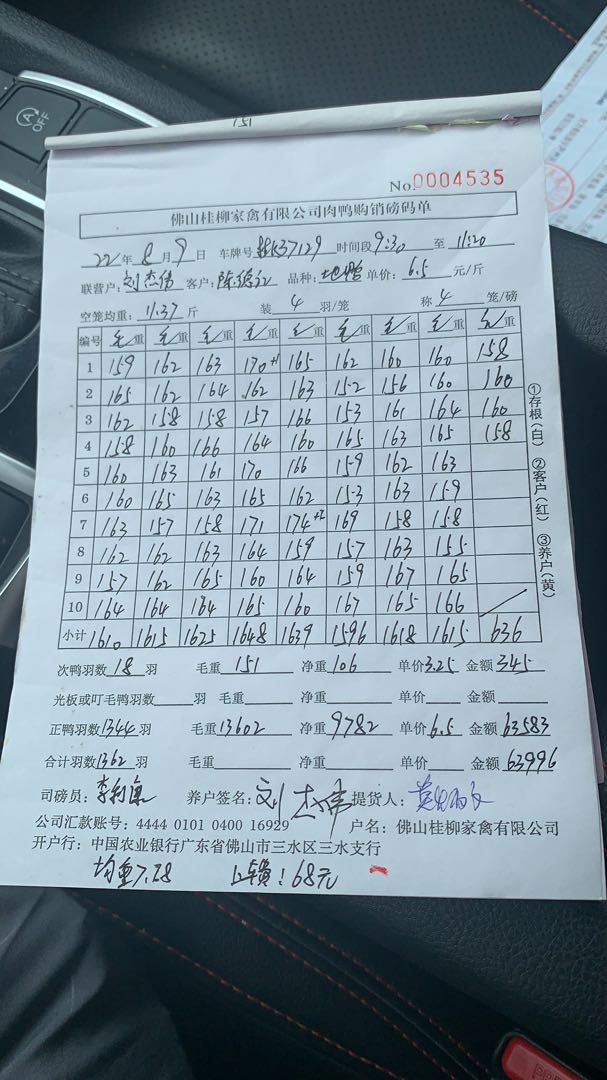 OFF
151
No.0004535
佛山桂柳家禽有限公司肉鸭购销磅码单
22年8月9日 车牌号 K37129 时间段 9:30 至 11:20
联营户:刘杰伟 客户:陈 品种: 单价:6.5 元/斤
空笼均重:11.37 斤 装 4 羽/笼 称 4 笼/磅
编号 毛/重 毛/重 毛/重 毛/重 毛/重 毛/重 毛/重 毛/重 毛/重
1 159 162 163 170+1 165 162 160 160 158
2 165 162 164 162 163 152 156 160 160
3 162 158 158 157 166 153 161 164 160
4 158 160 166 164 160 165 163 165 158
5 160 163 161 170 166 159 162 163
6 160 165 163 165 162 153 163 159
7 163 157 158 171 174+2 169 158 158
8 162 162 163 164 159 157 163 155
9 157 162 165 160 164 159 167 165
10 164 164 164 165 160 167 165 166
小计 1610 1615 1625 1648 1639 1596 1618 1615 636
①存根(白) ②客户(红) ③养户(黄)
次鸭羽数 18 羽 毛重 151 净重 106 单价 3.25 金额 345
光板或叮毛鸭羽数 羽 毛重 净重 单价 金额
正鸭羽数 1344 羽 毛重 13602 净重 9782 单价 6.5 金额 63583
合计羽数 1362 羽 毛重 净重 单价 金额 63996
司磅员: 养户签名:刘杰伟 提货人:
公司汇款账号:4444 0101 0400 16929 户名:佛山桂柳家禽有限公司
开户行:中国农业银行广东省佛山市三水区三水支行
均重7.28 费:68元